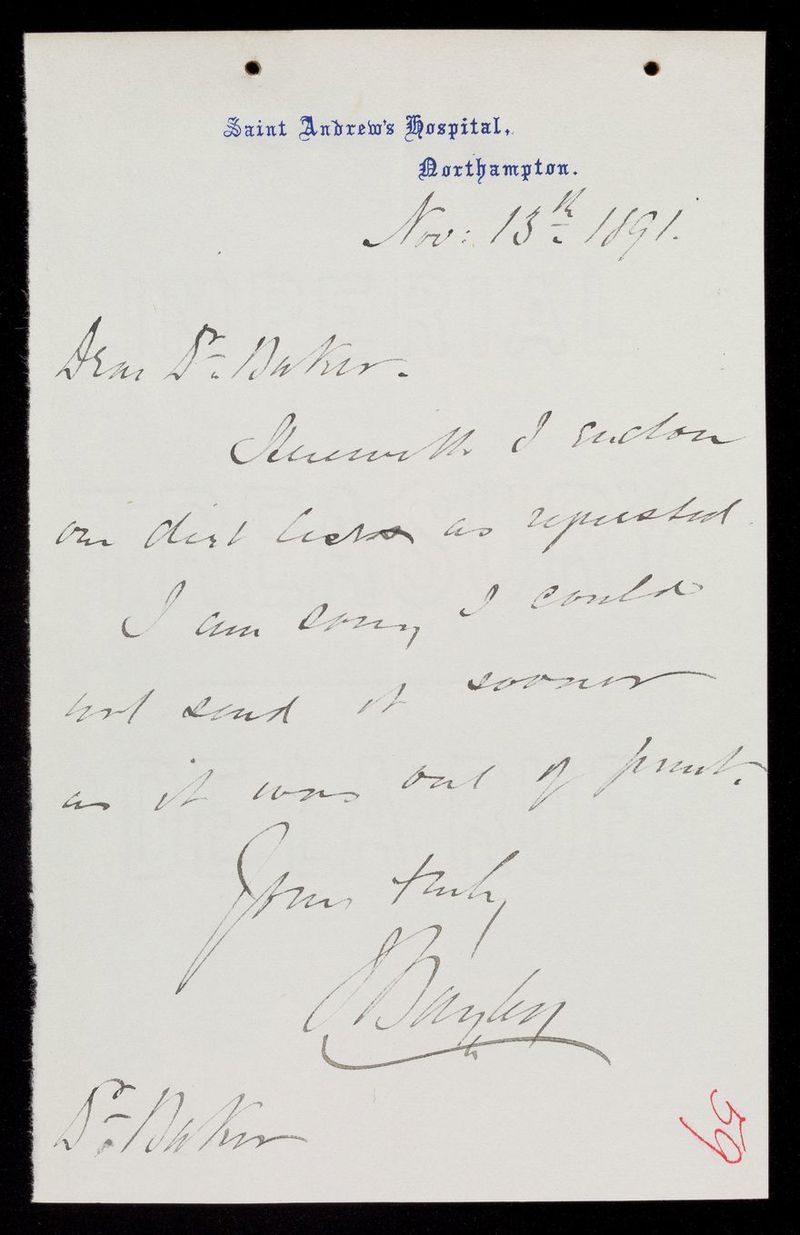 Saint Andrew's Hospital,
Northampton.
Nov: 13th 1891.
Dear Dr. Baker.
Herewith I enclose
our diet list as requested
I am sorry I could
not send it sooner
as it was out of print.
Yours truly
J Bayley
Dr. Baker
59